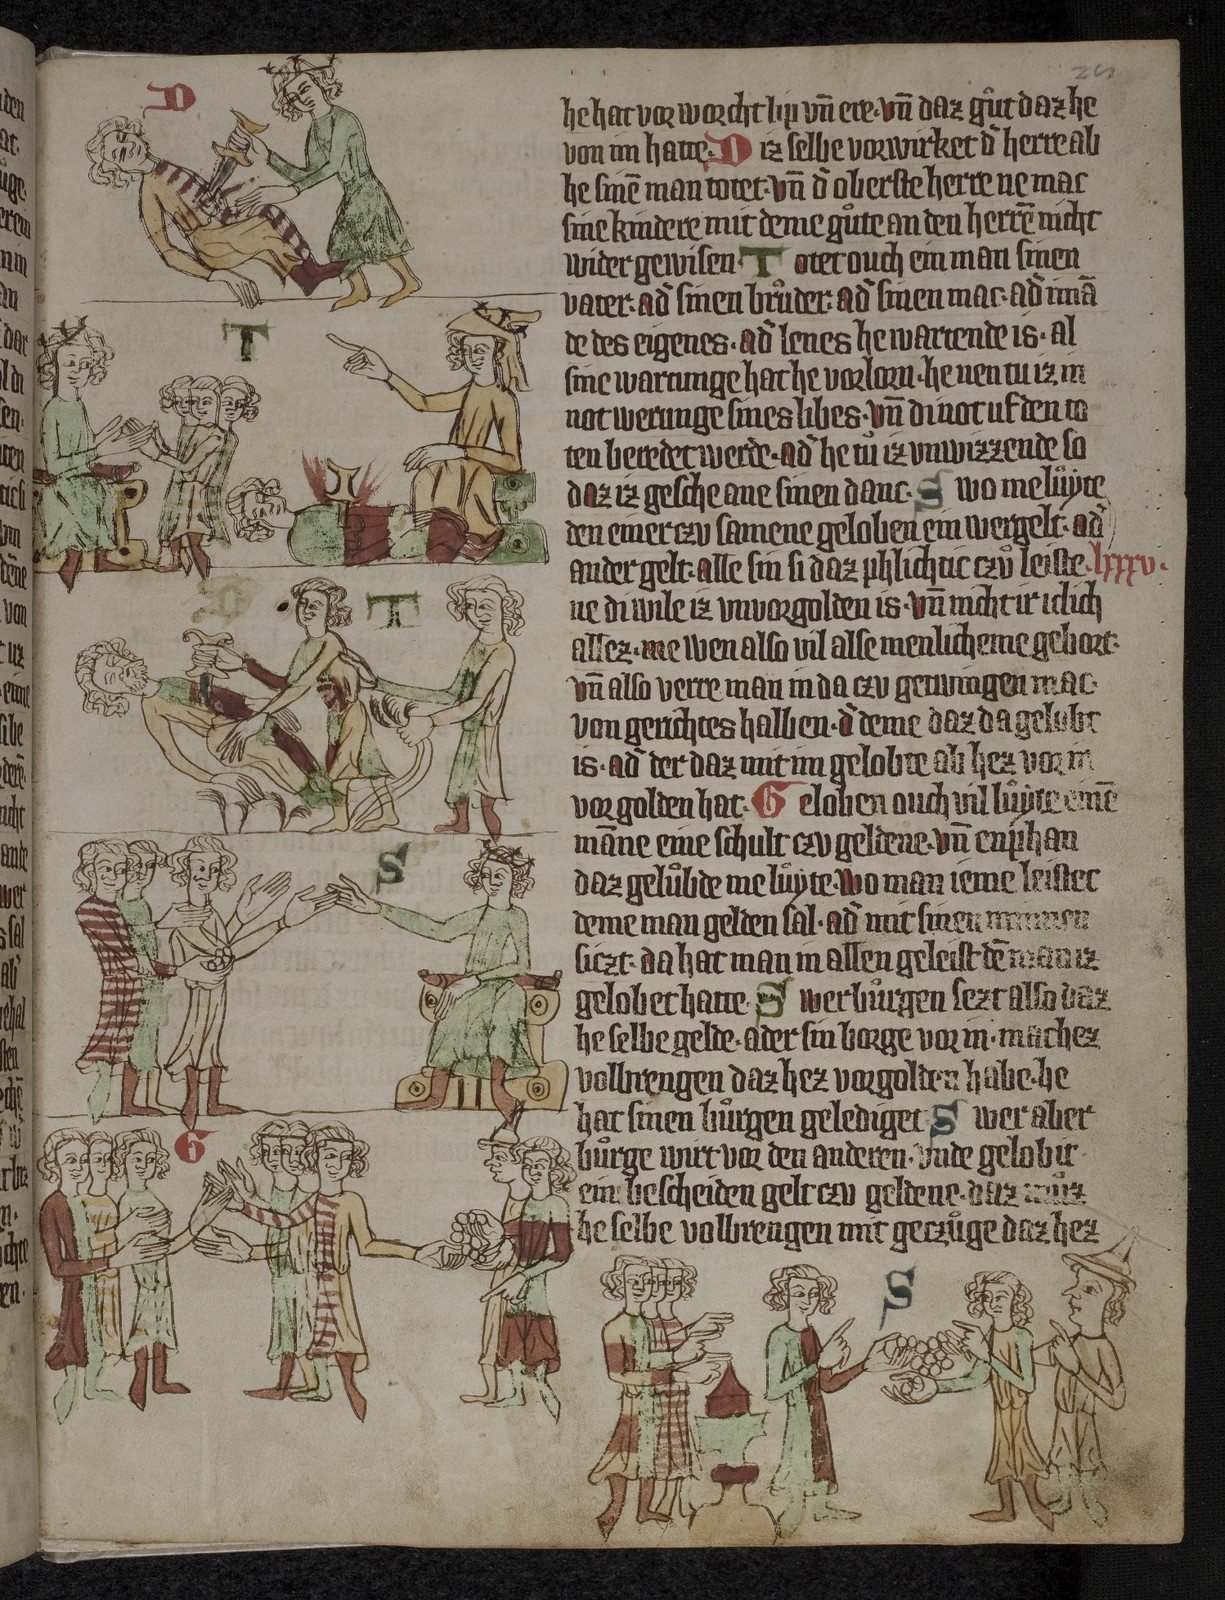 he hat vor worcht lip vn̄ ere· vn̄ daz gůt daz he
von im hatte· D iz selbe vorwirket d̄ herre ab
he sinē man totet· vn̄ d̄ oberste herre ne mac
sine kindere mit deme gůte an den herrē nicht
wider gewisen· T otet ouch ein man sinen
vater· ad̄ sinen brůder· ad̄ sinen mac· ad̄ imā
de des eigenes· ad̄ lenes he wartende is· al
sine wartunge hat he vorlorn· he nen tu iz in
notwerunge sines libes· vn̄ di not uf den to
ten beredet werde· ad̄ he tů iz vnwizzende so
daz iz gesche ane sinen danc· S wo me lůyte
den einer czv samene geloben ein wergelt· ad̄
ander gelt· alle sin si daz phlichtic czů leiste· lxxxv·
ne di wile iz vnvorgolden is· vn̄ nicht ir iclich
allez· me wen also vil alse menlicheme gebort·
vn̄ also verre man in da czv getwingen mac·
von gerichtes halben· d̄ deme daz da gelobt
is· ad̄ der daz mit im gelobte ab hez vor in
vorgolden hat· G eloben ouch vil lůyte eimē
māne eine schult czv geldene· vn̄ enphan
daz gelůbde me lůyte· wo man ieme leistet
deme man gelden sal· ad̄ mit sinen minnen
siczt· da hat man in allen geleist dē man iz
gelobet hatte· S wer bůrgen sezt also daz
he selbe gelde· ader sin borge vor in· mac hez
vollbrengen daz hez vorgolden habe· he
hat sinen bůrgen gelediget· S wer aber
bůrge wirt vor den anderen· vnde gelobit
ein bescheiden gelt czv geldene· daz můz
he selbe volbrengen mit geczůge daz hez
D
T
D
T
S
G
S